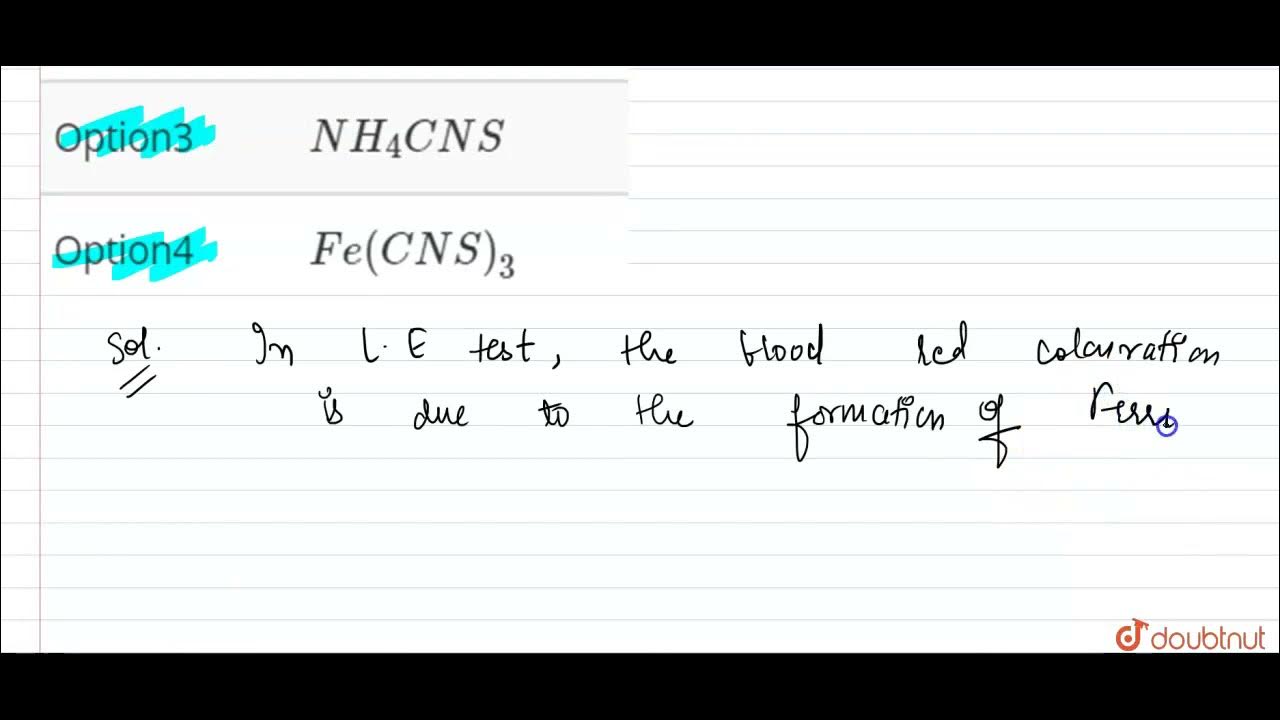 Option3 NH₄CNS
Option4 Fe(CNS)₃
Sol. In L.E test, the blood red colouration
is due to the formation of Ferri
doubtnut